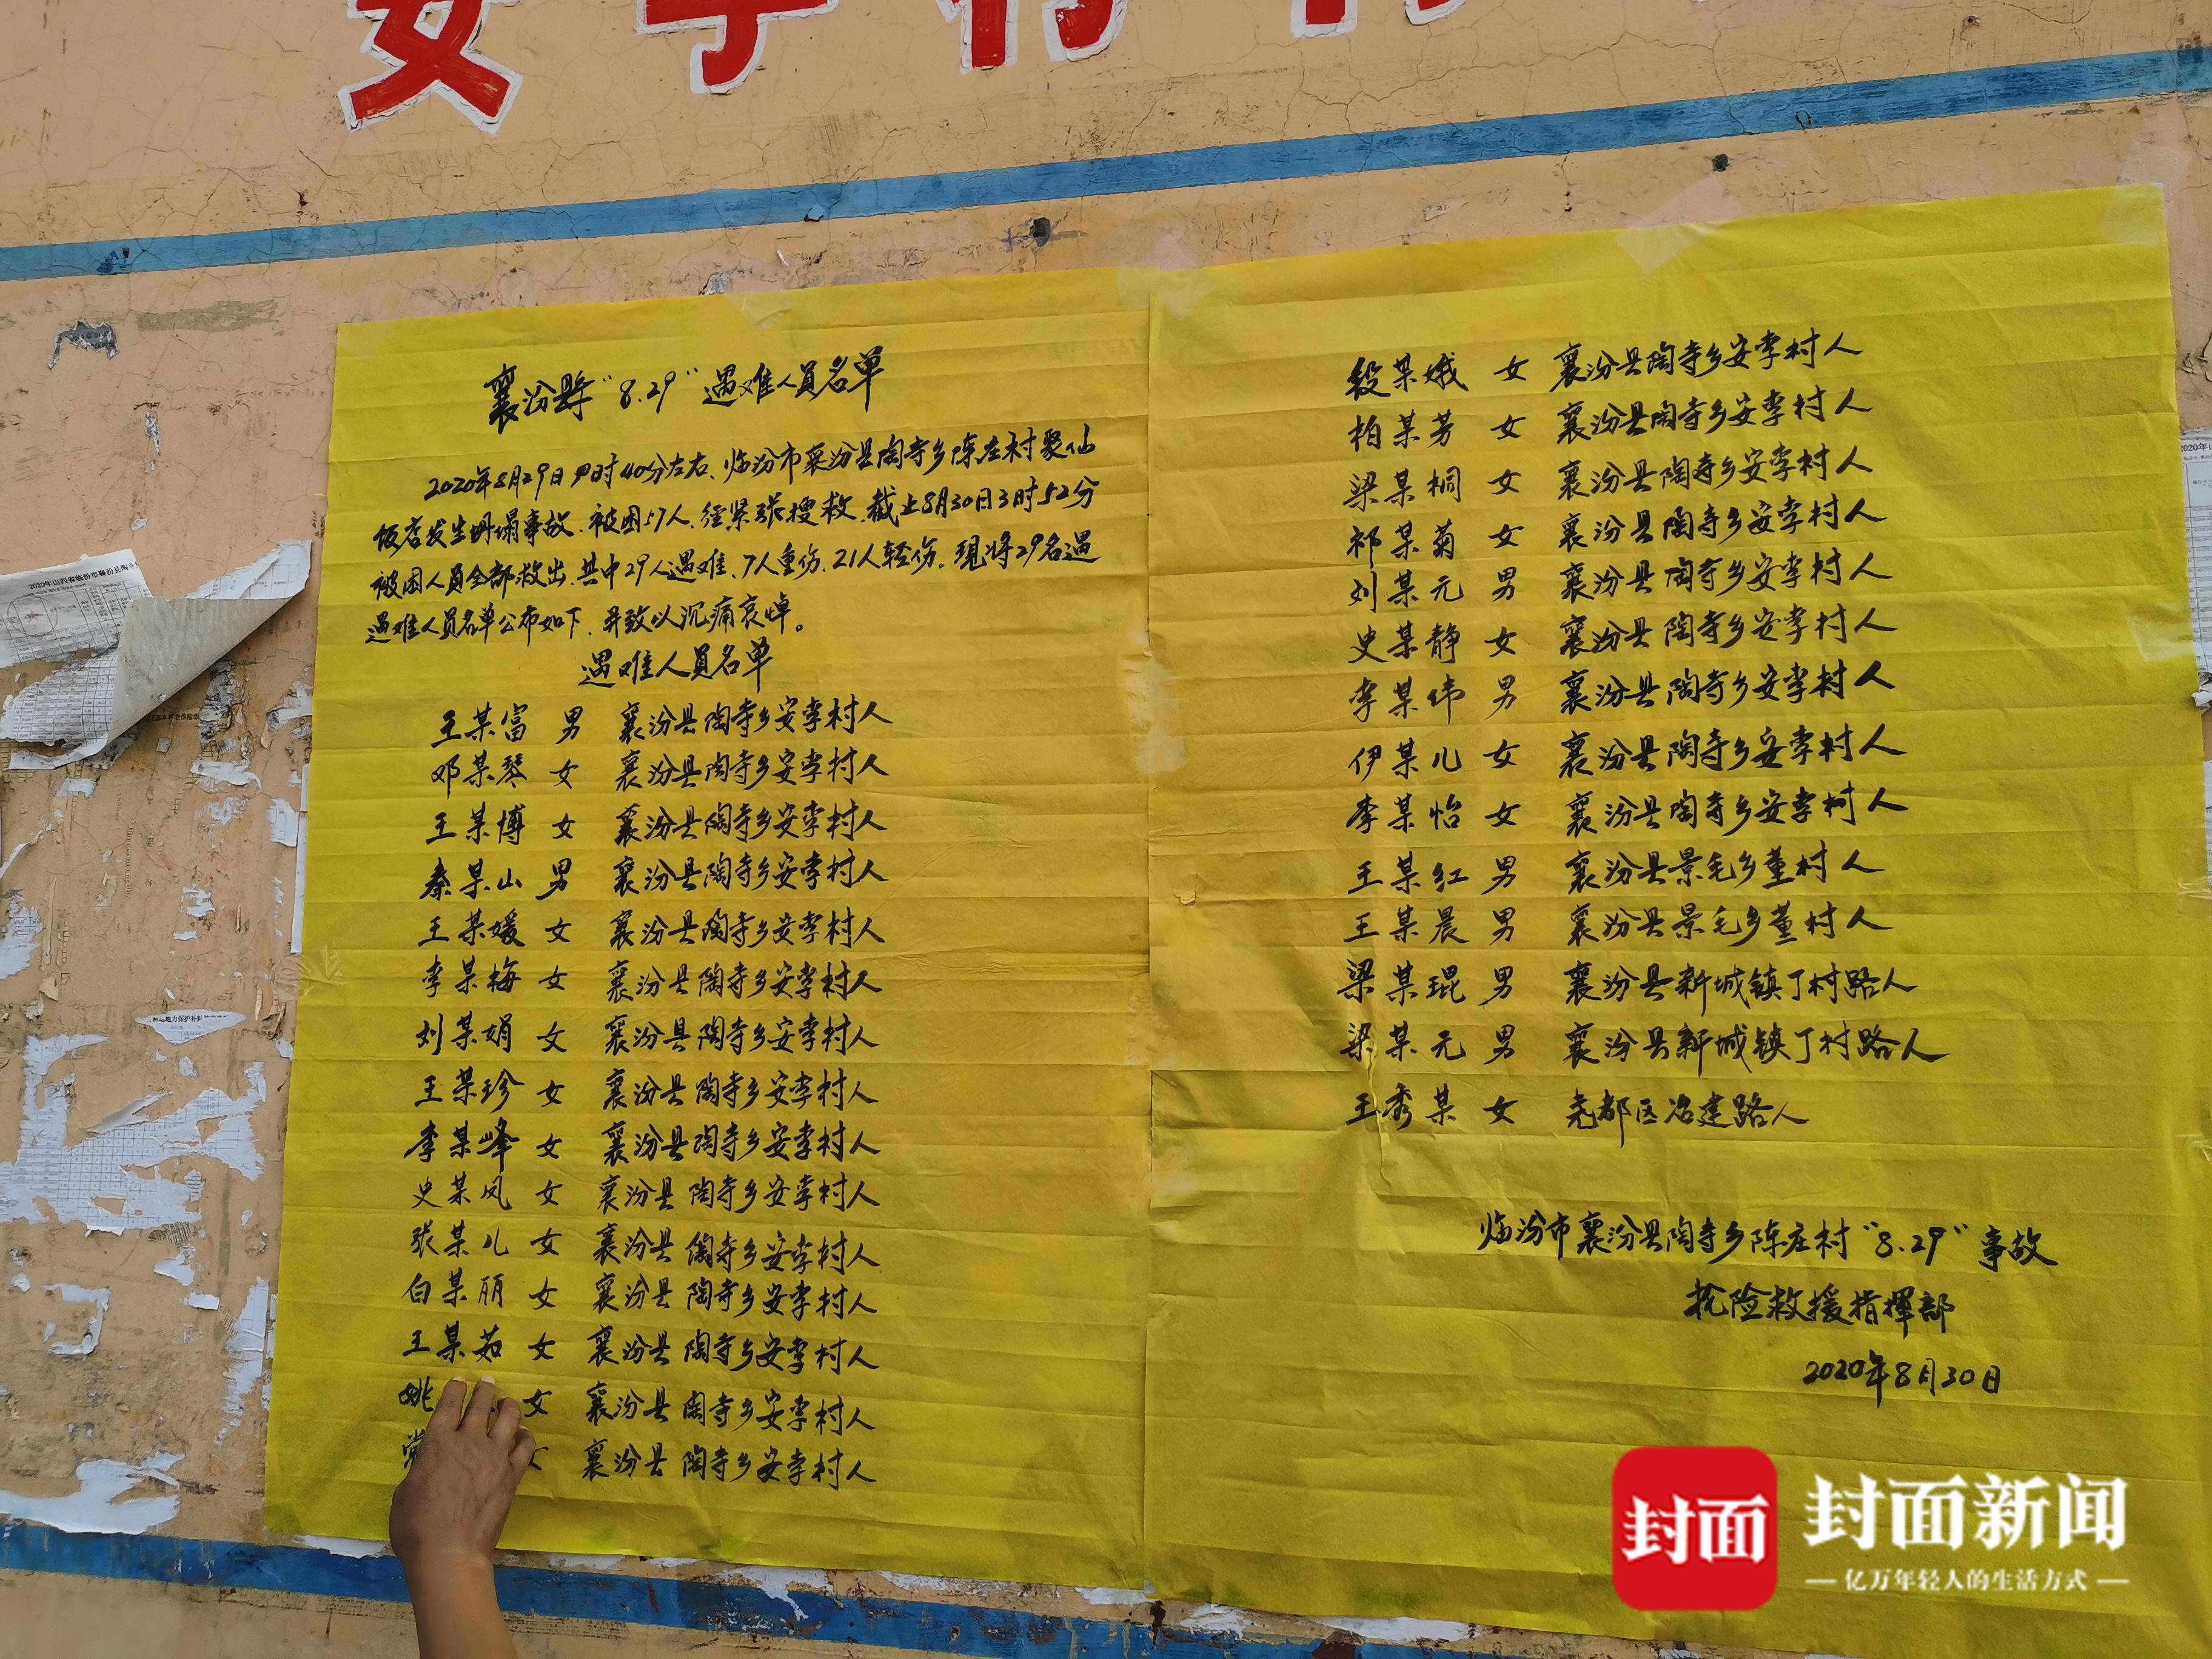 安李村村
襄汾县“8.29”遇难人员名单
2020年8月29日9时40分左右、临汾市襄汾县陶寺乡陈庄村聚仙
饭店发生坍塌事故.被困57人.经紧张搜救.截止8月30日3时52分
被困人员全部救出.其中29人遇难、7人重伤.21人轻伤。现将29名遇
遇难人员名单公布如下.并致以沉痛哀悼。
遇难人员名单
王某富 男 襄汾县陶寺乡安李村人
邓某琴 女 襄汾县陶寺乡安李村人
王某博 女 襄汾县陶寺乡安李村人
秦某山 男 襄汾县陶寺乡安李村人
王某媛 女 襄汾县陶寺乡安李村人
李某梅 女 襄汾县陶寺乡安李村人
刘某娟 女 襄汾县陶寺乡安李村人
王某珍 女 襄汾县陶寺乡安李村人
李某峰 女 襄汾县陶寺乡安李村人
史某凤 女 襄汾县陶寺乡安李村人
张某儿 女 襄汾县陶寺乡安李村人
白某丽 女 襄汾县陶寺乡安李村人
王某茹 女 襄汾县陶寺乡安李村人
姚 女 襄汾县陶寺乡安李村人
女 襄汾县陶寺乡安李村人
段某娥 女 襄汾县陶寺乡安李村人
柏某芳 女 襄汾县陶寺乡安李村人
梁某桐 女 襄汾县陶寺乡安李村人
祁某菊 女 襄汾县陶寺乡安李村人
刘某元 男 襄汾县陶寺乡安李村人
史某静 女 襄汾县陶寺乡安李村人
李某伟 男 襄汾县陶寺乡安李村人
伊某儿 女 襄汾县陶寺乡安李村人
李某怡 女 襄汾县陶寺乡安李村人
王某红 男 襄汾县景毛乡董村人
王某晨 男 襄汾县景毛乡董村人
梁某琨 男 襄汾县新城镇丁村路人
梁某元 男 襄汾县新城镇丁村路人
王秀某 女 尧都区冶建路人
临汾市襄汾县陶寺乡陈庄村“8.29”事故
抢险救援指挥部
2020年8月30日
2020年山西省临汾市襄汾县陶寺
封面
封面新闻
亿万年轻人的生活方式